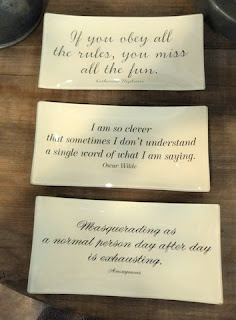 If you obey all
the rules, you miss
all the fun.
Katharine Hepburn
I am so clever
that sometimes I don't understand
a single word of what I am saying.
Oscar Wilde
Masquerading as
a normal person day after day
is exhausting.
Anonymous